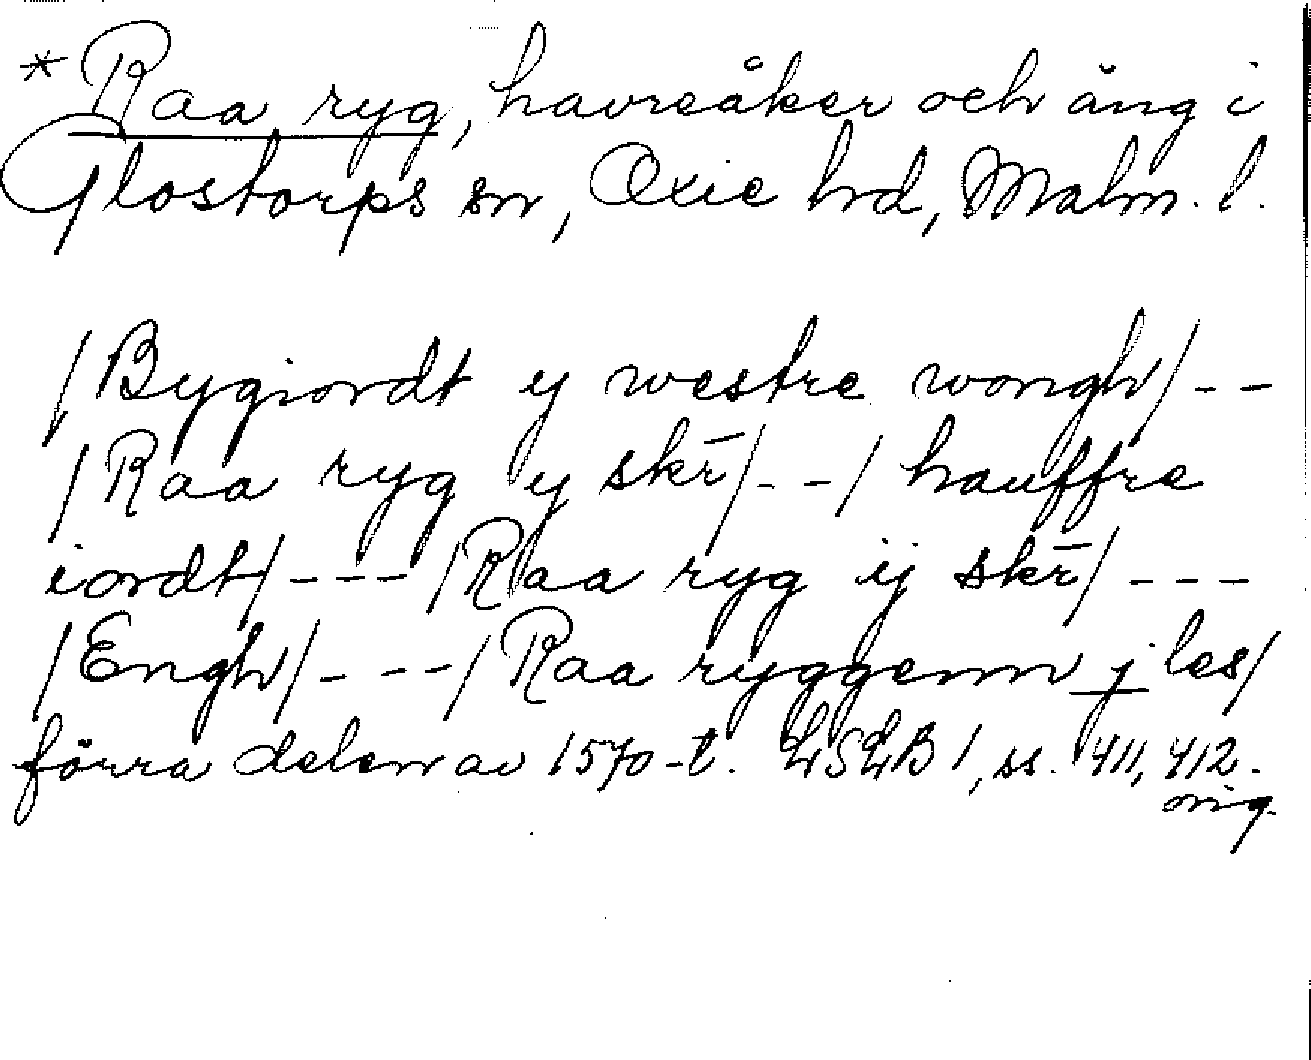 *Raa ryg, havreåker och äng i
Glostorps sn, Oxie hrd, Malm. l.
/Bygiordt y westre wongh/--
/Raa ryg y skr̄/--/hauffre
iordt/---/Raa ryg ij skr̄/---
/Engh/---/Raa ryggenn j les/
förra delen av 1570-t. LSLB 1, ss. 411, 412.
orig.